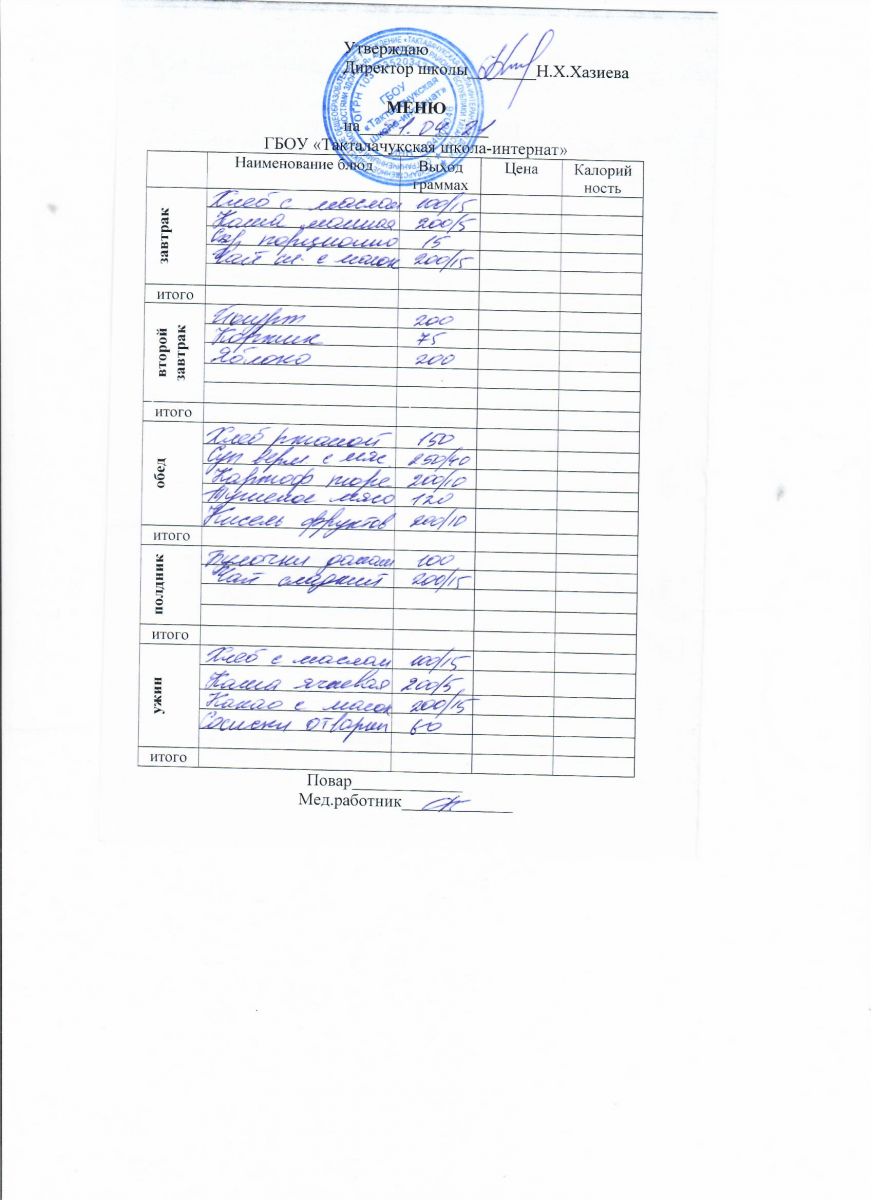 Утверждаю
Директор школы ________Н.Х.Хазиева
МЕНЮ
на 04. 21
ГБОУ «Такталачукская школа-интернат»
ГБОУ
«Такталачукская
школа-интернат»
Наименование блюд Выход граммах Цена Калорий ность
завтрак
Хлеб с маслом 100/15
Каша манная 200/5
порционно 15
Чай с молок 200/15
итого
второй завтрак
Йогурт 200
Коржик 75
Яблоко 200
итого
обед
Хлеб ржаной 150
Суп верм с мяс. 250/40
Картоф пюре 200/10
Тушеное мясо 120
Кисель фруктов 200/10
итого
полдник
Булочки домаш 100
Чай сладкий 200/15
итого
ужин
Хлеб с маслом 100/15
Каша ячневая 200/5
Какао с молок 200/15
Сосиски отварн 60
итого
Повар____________
Мед.работник____________